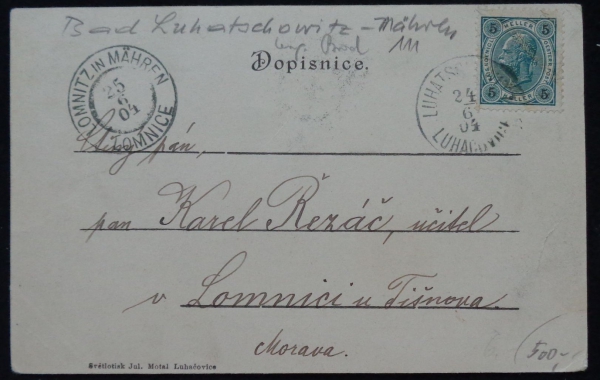 Bad Luhatschowitz - Mähren
Brod 111
Dopisnice.
LOMNITZ IN MÄHREN
25
6
04
LOMNICE
LUHATSCHO
24
6
04
LUHAČO
5 HELLER 5
5 HELLER 5
pán,
pan Karel Řezáč, učitel
v Lomnici u Tišnova.
Morava.
Světlotisk Jul. Motal Luhačovice
500,-